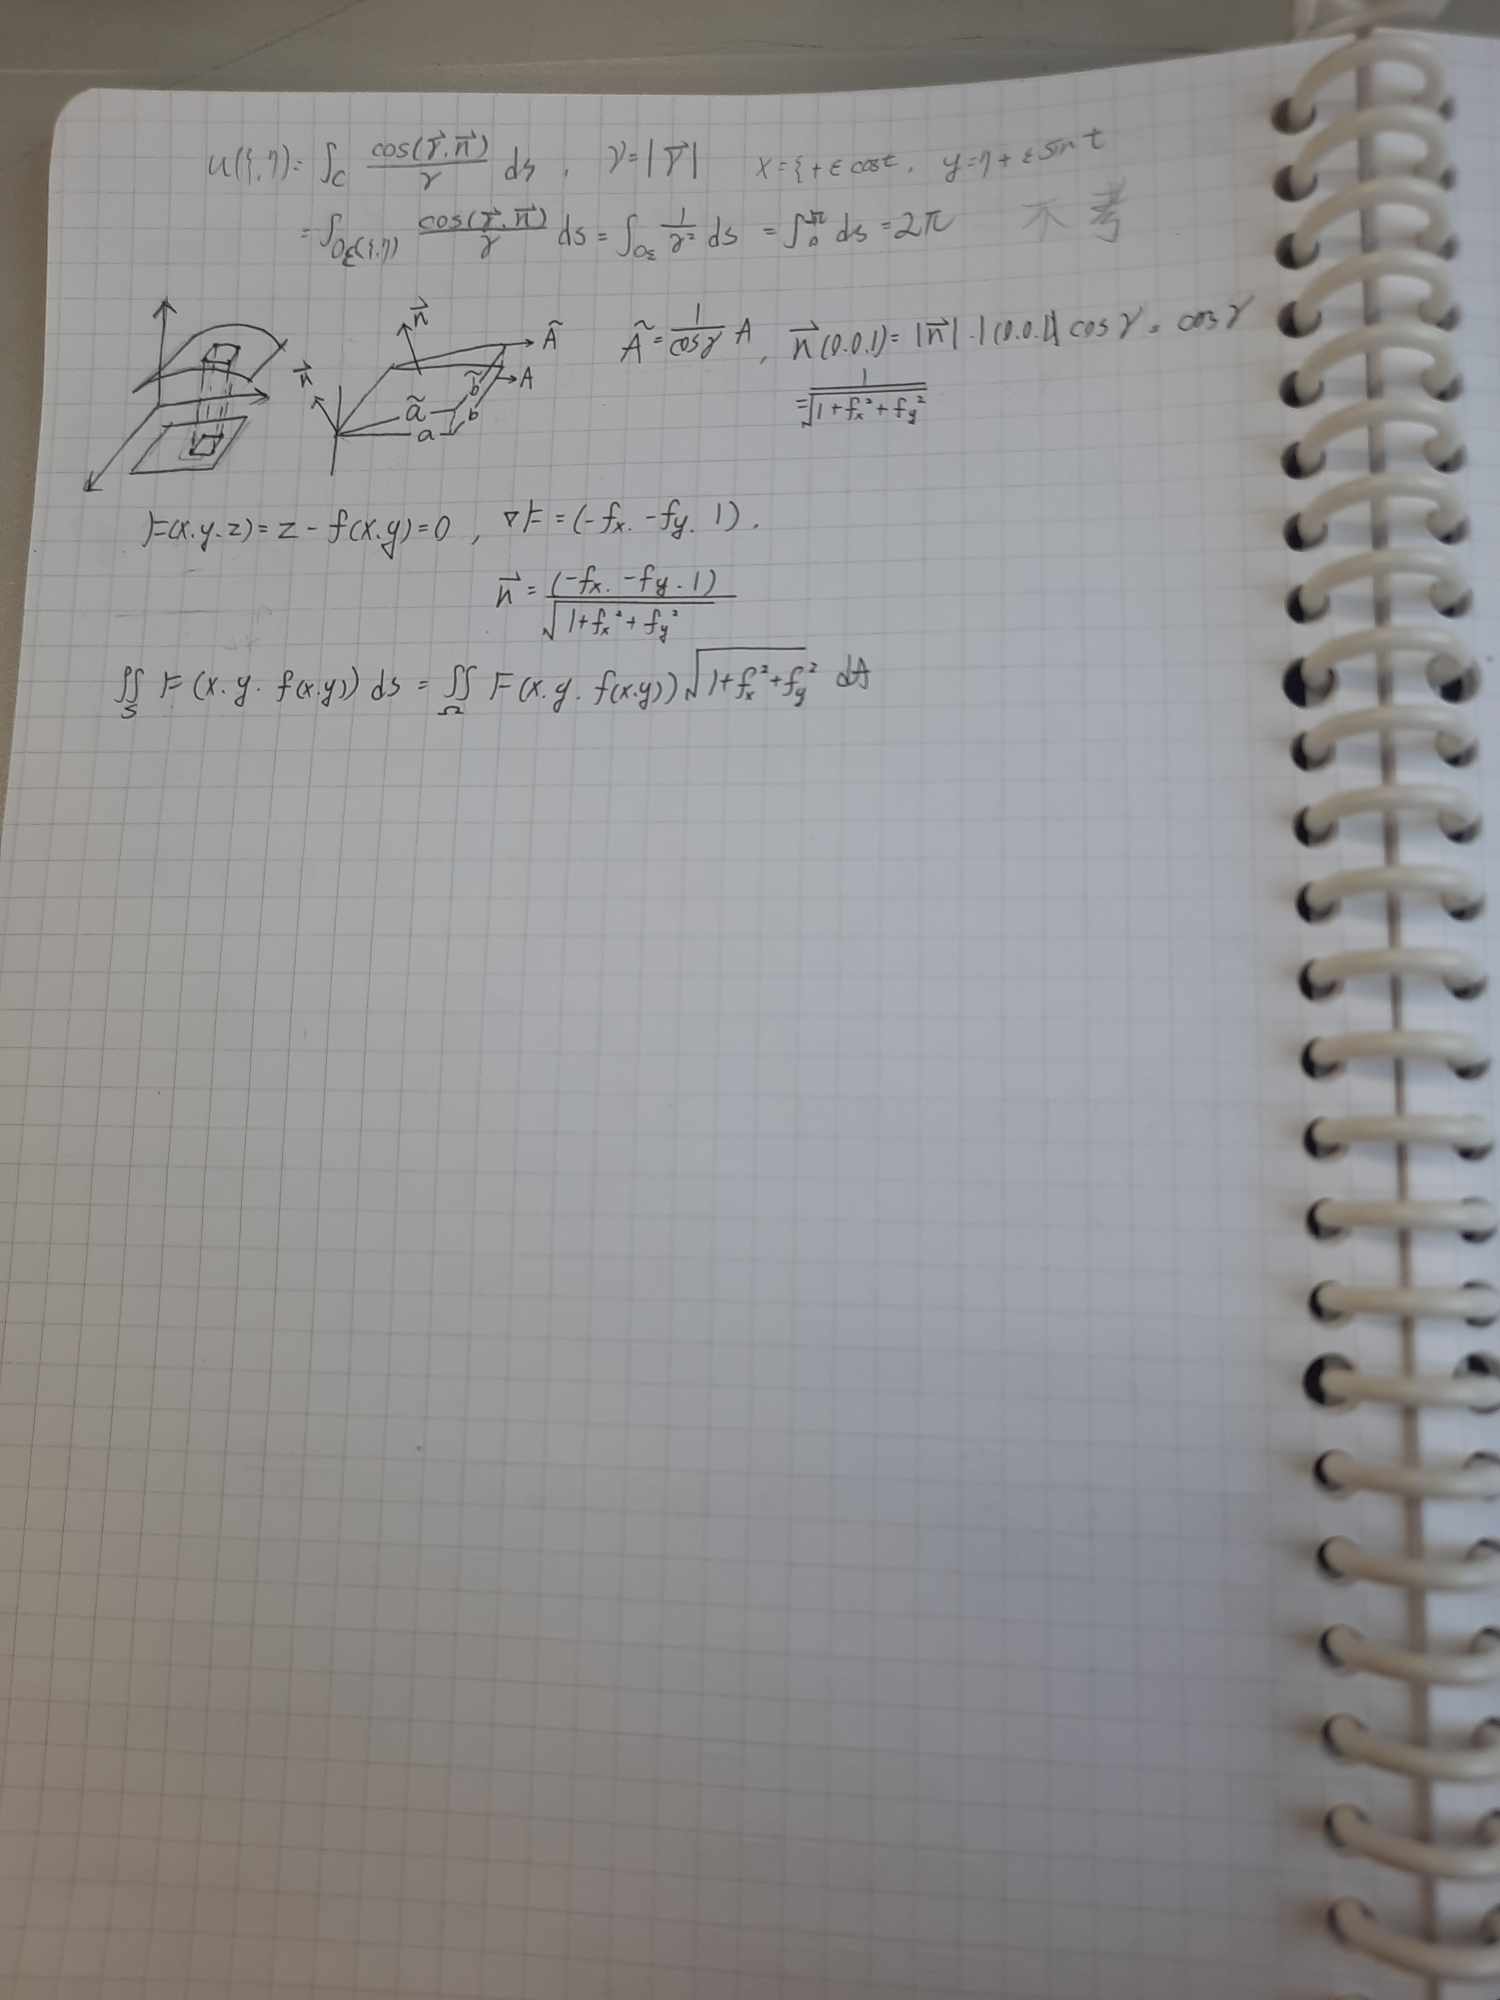 u(ξ,η)= ∫_C cos(r⃗.n⃗)/r ds , r=|r⃗| x=ξ+ε cost, y=η+ε sin t
= ∫_{O_ε(ξ,η)} cos(r⃗.n⃗)/r ds = ∫_{O_ε} 1/r² ds = ∫_0^{2π} ds = 2π 不考
n⃗ Ã A n⃗ ã b̃ a b
Ã = 1/cosγ A , n⃗(0.0.1)= |n⃗|.|(0.0.1)| cosγ = cosγ
= 1/√(1+fx²+fy²)
F(x.y.z)= z - f(x.y)=0 , ∇F = (-fx. -fy. 1).
n⃗ = (-fx. -fy. 1)/√(1+fx²+fy²)
∬_S F(x.y. f(x.y)) ds = ∬_Ω F(x.y. f(x.y)) √(1+fx²+fy²) dA